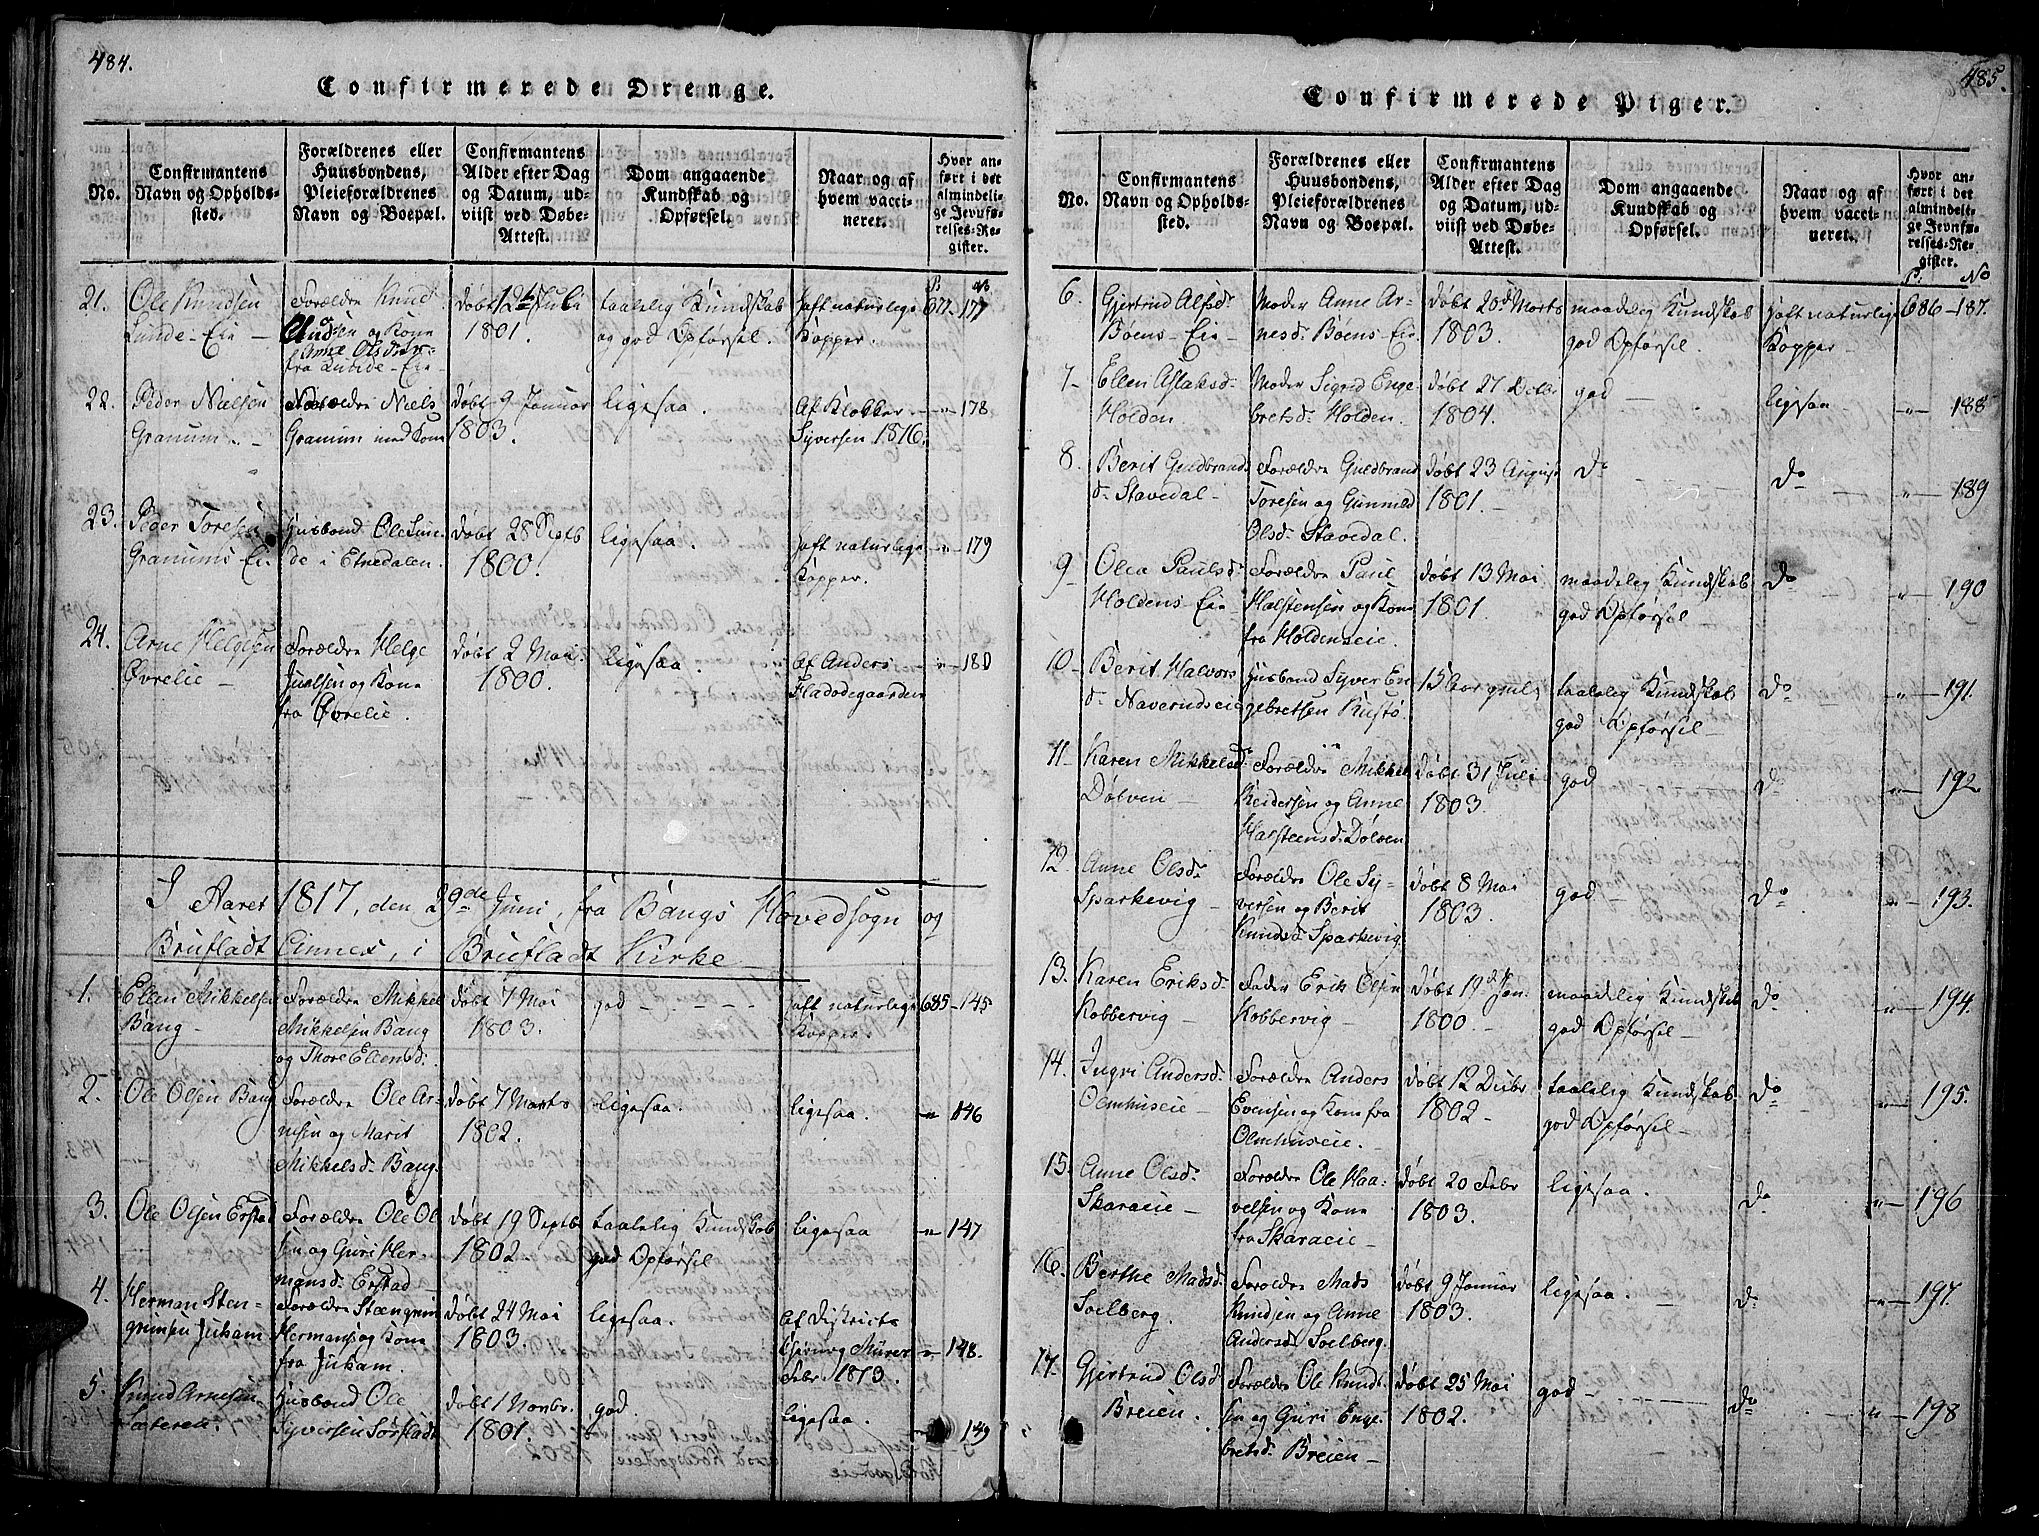 484.
Confirmerede Drenge.
No.
Confirmantens
Navn og Opholds-
sted.
Forældrenes eller
Huusbondens,
Pleieforældrenes
Navn og Boepæl.
Confirmantens
Alder efter Dag
og Datum, ud-
viist ved Døbe-
Attest.
Dom angaaende
Kundskab og
Opførsel.
Naar og af
hvem vacci-
neret.
Hvor an-
ført i det
almindeli-
ge Jevnfø-
relses-Re-
gister.
21. Ole Knudsen
Lunde-Eie
Forældre Knud
og Kone
Anne Olsdr
fra Lunde-Eie
døbt 12 Juli
1801.
taalelig Kundskab
og god Opførsel.
haft naturlige
Kopper.
677-177
22. Peder Nielsen
Granum
Forældre Niels
Granum med Kone
døbt 9 Januar
1803.
ligesaa.
Af Klokker
Syversen 1816.
-"- 178
23. Peder Toresen
Granums-Eie
Husbond Ole Lun-
de i Etnedalen.
døbt 28 Septb
1800.
ligesaa.
haft naturlige
Kopper.
-"- 179
24. Arne Helgesen
Øvrelie
Forældre Helge
Juelsen og Kone
fra Øvrelie.
døbt 2 Mai
1800.
ligesaa.
Af Anders
Fladodegaarden
" 180
I Aaret 1817, den 29de Juni, fra Bangs Hovedsogn og
Brufladt Annex, i Brufladt Kirke
1. Ellen Mikkelsen
Bang
Forældre Mikkel
Mikkelsen Bang
og Thore Ellensd.
døbt 7 Mai
1803.
god
haft naturlige
Kopper.
685-145
2. Ole Olsen Bang
Forældre Ole Ar-
nesen og Marit
Mikkelsd. Bang.
døbt 7 Marts
1802.
ligesaa.
ligesaa.
" 146
3. Ole Olsen Erstad
Forældre Ole Ol-
sen og Guri Her-
mansd. Erstad
døbt 19 Septb
1802.
taalelig Kundskab
god Opførsel
ligesaa
-"- 147
4. Herman Sten-
grimsen Juham
Forældre Stengrim
Hermans og Kone
fra Juham.
døbt 24 Mai
1803.
ligesaa.
Af Districts
Chirurg Mürer
Febr. 1813.
" 148.
5. Knud Arnesen
Sæteren.
Husbond Ole
Syversen Sørstadt
døbt 1 Novbr.
1801.
god.
ligesaa.
149
485.
Confirmerede Piger.
No.
Confirmantens
Navn og Opholds-
sted.
Forældrenes eller
Huusbondens,
Pleieforældrenes
Navn og Boepæl.
Confirmantens
Alder efter Dag
og Datum, ud-
viist ved Døbe-
Attest.
Dom angaaende
Kundskab og
Opførsel.
Naar og af
hvem vacci-
neret.
Hvor an-
ført i det
almindeli-
ge Jevnfø-
relses-Re-
gister.
P: No
6. Gjertrud Alfsd.
Bøens-Eie
Moder Anne Ar-
nesd. Bøens-Eie
døbt 20d Marts
1803.
maadelig Kundskab
god Opførsel.
haft naturlige
Kopper
686-187.
7. Ellen Aslaksd.
Holden
Moder Sigrid Enge-
bretsd. Holden.
døbt 27 Octbr
1804.
god
ligesaa
" 188
8. Berit Guldbrands
d. Stavedal
Forældre Guldbrand
Toresen og Gunnild
Olsd. Stavedal.
døbt 23 August
1801.
do
do
" 189
9. Olea Paulsd.
Holdens-Eie
Forældre Paul
Halstensen og Kone
fra Holdenseie.
døbt 13 Mai
1801.
maadelig Kundskab
god Opførsel
do
" 190
10 Berit Halvors
d. Naverudseie
Husbond Syver En-
gebretsen Rustø.
15 aar gml.
taalelig Kundskab
god Opførsel
do
" 191.
11 Karen Mikkelsd.
Dølven
Forældre Mikkel
Reidersen og Anne
Halsteensd. Dølven
døbt 31 Juli
1803.
god
do
" 192
12. Anne Olsd.
Sparkevig
Forældre Ole Sy-
versen og Berit
Knudsd. Sparkevig
døbt 8 Mai
1803.
god
do
" 193.
13. Karen Eriksd.
Kobbervig
Fader Erik Olsen
Kobbervig
døbt 19d Jan.
1800.
maadelig Kundskab
god Opførsel
do
" 194.
14. Ingri Andersd.
Olmhuseie
Forældre Anders
Evensen og Kone fra
Olmhuseie.
døbt 12 Decbr
1802
taalelig Kundskab
god Opførsel
do
" 195.
15. Anne Olsd.
Skaraeie
Forældre Ole Haa-
velsen og Kone
fra Skaraeie
døbt 20 Febr
1803.
ligesaa.
do
" 196
16. Berthe Madsd.
Soelberg.
Forældre Mads
Knudsen og Anne
Andersd. Soelberg.
døbt 9 Januar
1803.
ligesaa.
do
" 197.
17. Gjertrud Olsd.
Breien.
Forældre Ole Knud-
sen og Guri Enge-
bretsd. Breien
døbt 25 Mai
1802.
god
do
" 198